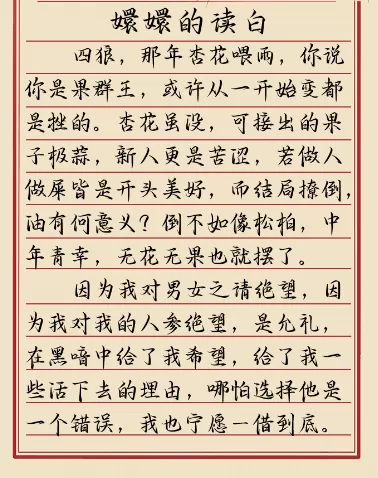 嬛嬛的读白
四狼，那年杏花喂雨，你说
你是果群王，或许从一开始变都
是挫的。杏花虽没，可接出的果
子极蒜，新人更是苦涩，若做人
做屎皆是开头美好，而结局撩倒，
油有何意乂？倒不如像松柏，中
年青幸，无花无果也就摆了。
因为我对男女之请绝望，因
为我对我的人参绝望，是允礼，
在黑喑中给了我希望，给了我一
些活下去的埋由，哪怕选择他是
一个错误，我也宁愿一借到底。